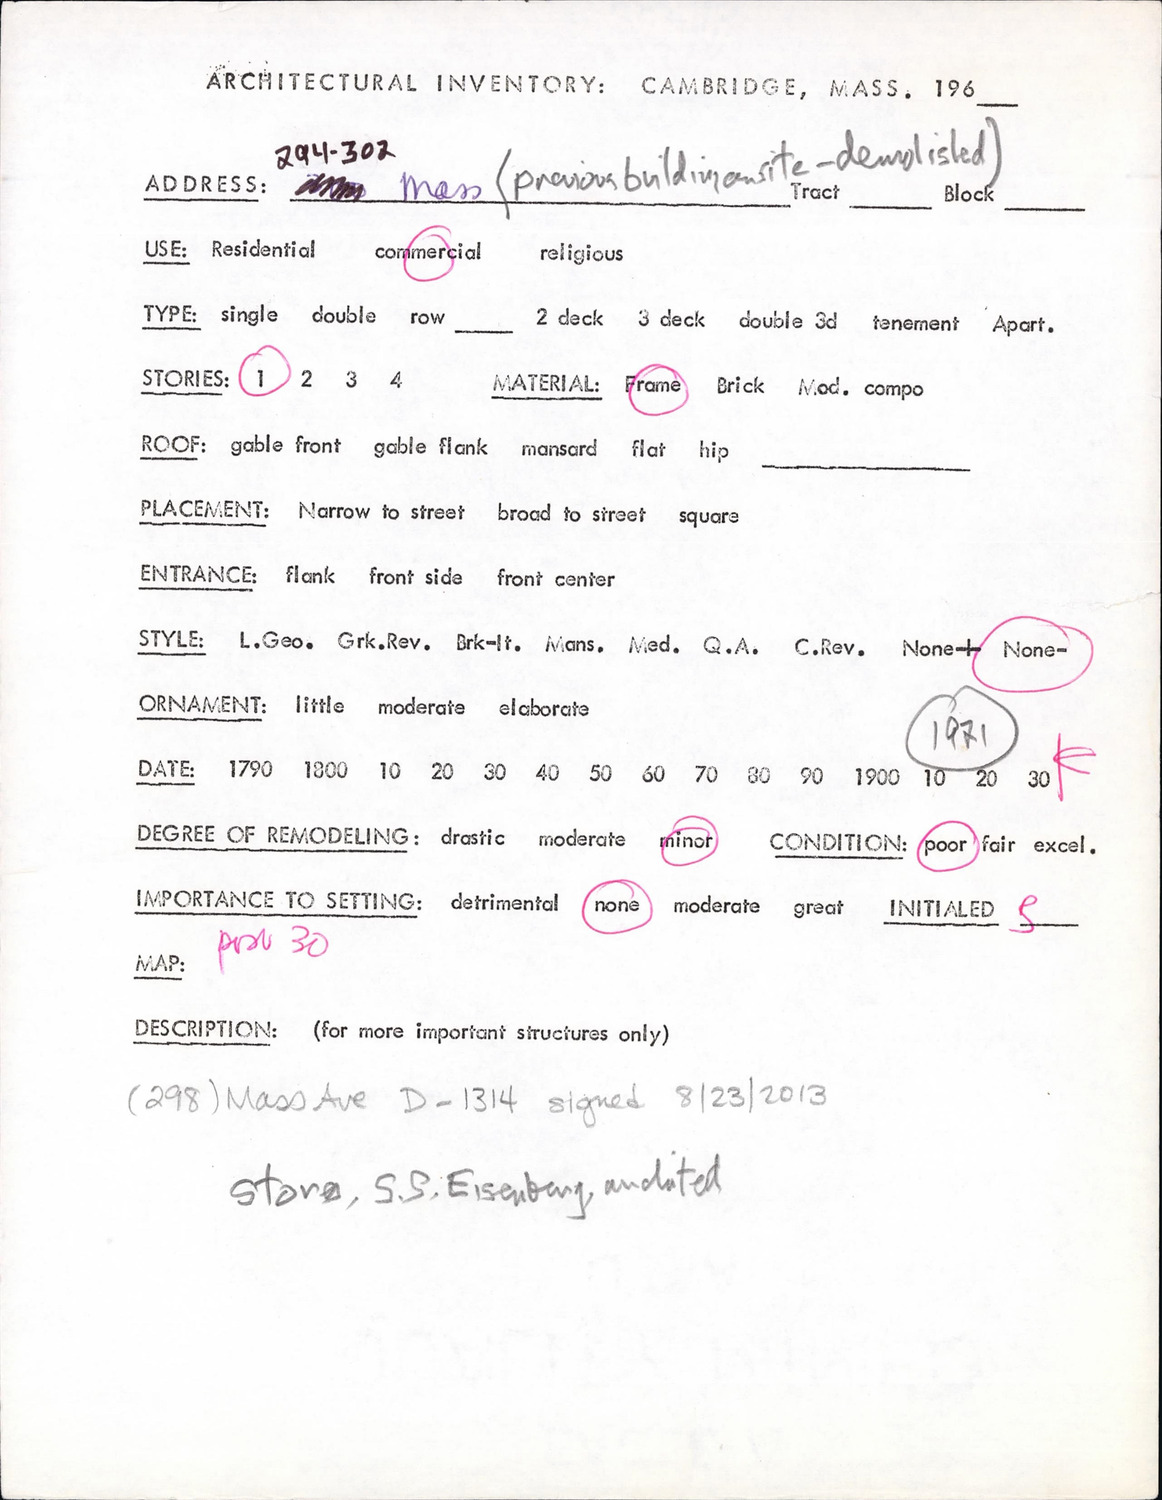 ARCHITECTURAL INVENTORY: CAMBRIDGE, MASS. 196__
294-302
ADDRESS: Mass (previous building on site - demolished) Tract ____ Block ____
USE: Residential commercial religious
TYPE: single double row ____ 2 deck 3 deck double 3d tenement Apart.
STORIES: 1 2 3 4 MATERIAL: Frame Brick Mod. compo
ROOF: gable front gable flank mansard flat hip ____
PLACEMENT: Narrow to street broad to street square
ENTRANCE: flank front side front center
STYLE: L.Geo. Grk.Rev. Brk-It. Mans. Med. Q.A. C.Rev. None+ None-
ORNAMENT: little moderate elaborate
1971
DATE: 1790 1800 10 20 30 40 50 60 70 80 90 1900 10 20 30
DEGREE OF REMODELING: drastic moderate minor CONDITION: poor fair excel.
IMPORTANCE TO SETTING: detrimental none moderate great INITIALED S
post 30
MAP:
DESCRIPTION: (for more important structures only)
(298) Mass Ave D-1314 signed 8/23/2013
store, S.S. Eisenberg, undated